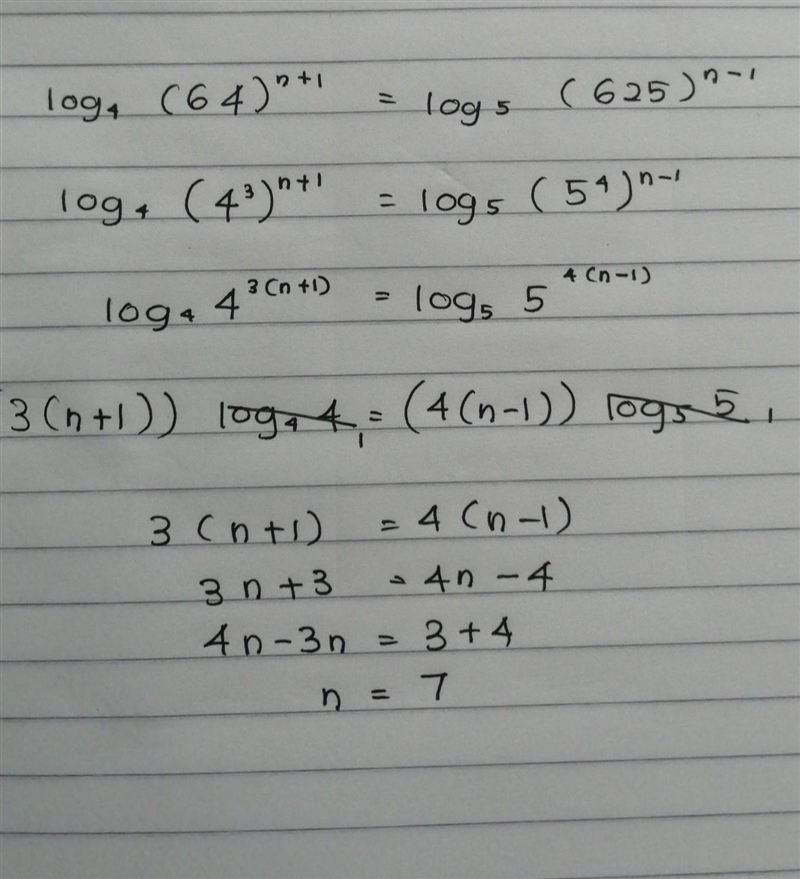 log₄ (64)ⁿ⁺¹ = log₅ (625)ⁿ⁻¹
log₄ (4³)ⁿ⁺¹ = log₅ (5⁴)ⁿ⁻¹
log₄ 4³⁽ⁿ⁺¹⁾ = log₅ 5⁴⁽ⁿ⁻¹⁾
3(n+1)) log₄ 4 1 = (4(n-1)) log₅ 5 1
3 (n+1) = 4 (n-1)
3n + 3 = 4n - 4
4n - 3n = 3 + 4
n = 7